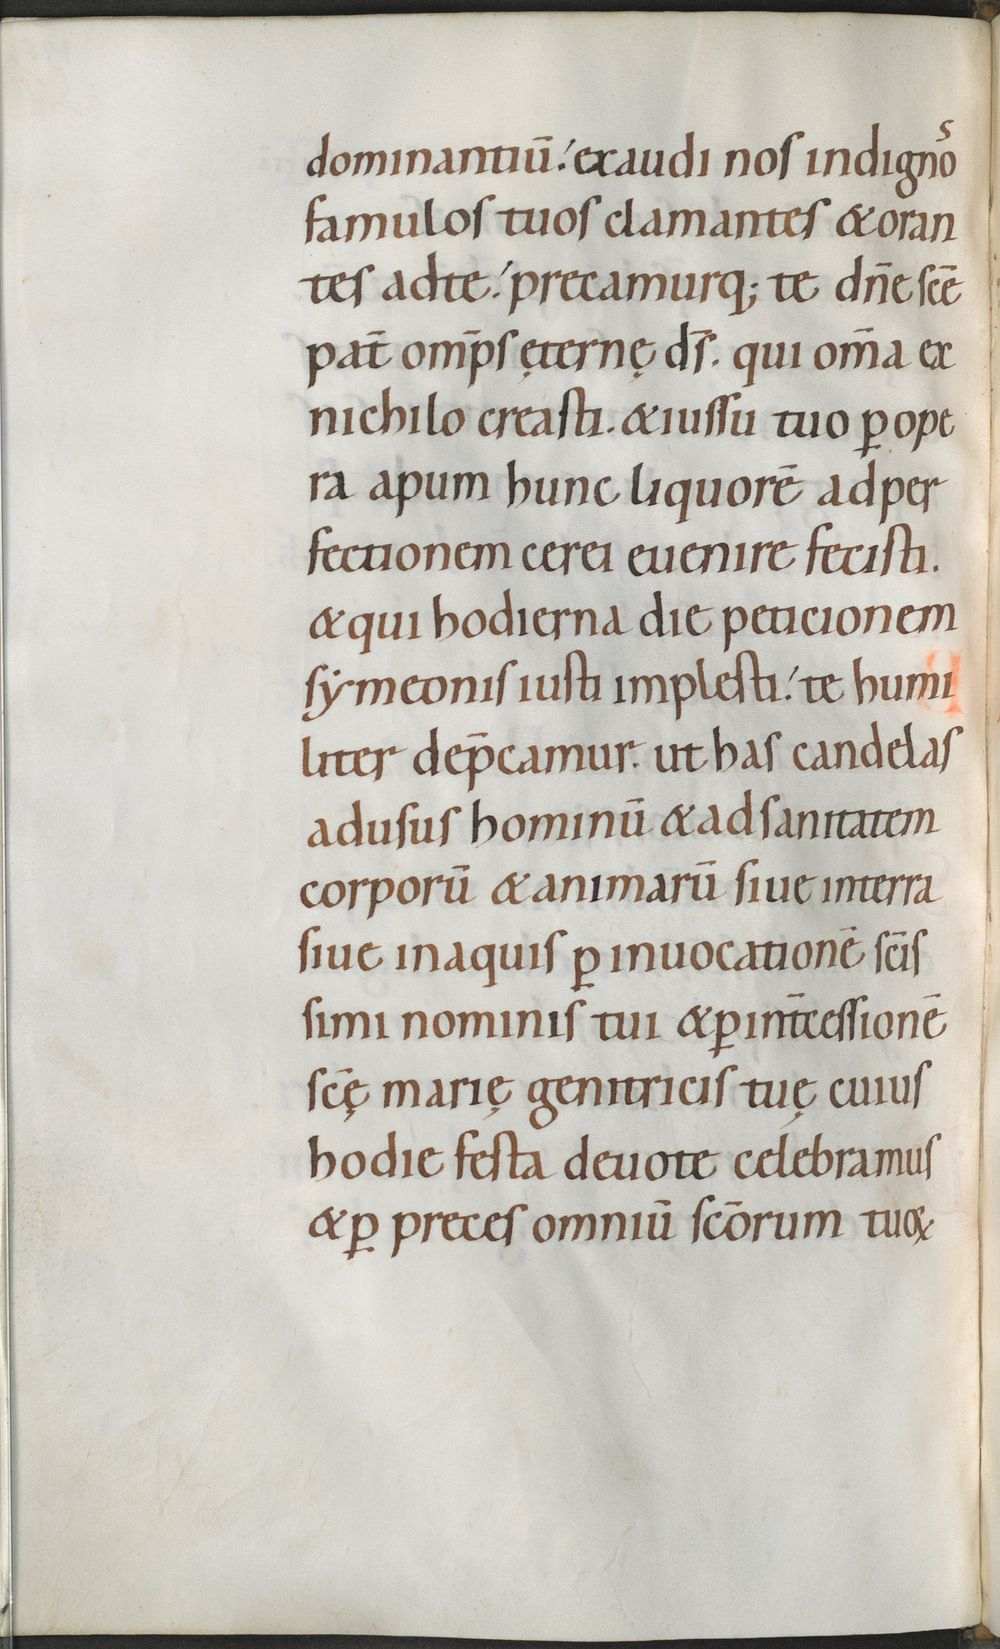 dominantiū. exaudi nos indignos
famulos tuos clamantes & oran
tes ad te. precamurq; te dn̄e sc̄e
pat̄ om̄ps ęternę ds̄. qui om̄a ex
nichilo creasti. & iussu tuo ꝑ ope
ra apum hunc liquorē ad per
fectionem cerei euenire fecisti.
& qui hodierna die peticionem
sẏmeonis iusti implesti. te humi
liter dep̄camur. ut has candelas
ad usus hominū & ad sanitatem
corporū & animarū siue in terra
siue in aquis ꝑ inuocationē sc̄is
simi nominis tui & ꝑ int̄cessionē
sc̄ę marię genitricis tuę cuius
hodie festa deuote celebramus
& ꝑ preces omniū sc̄orum tuoꝝ